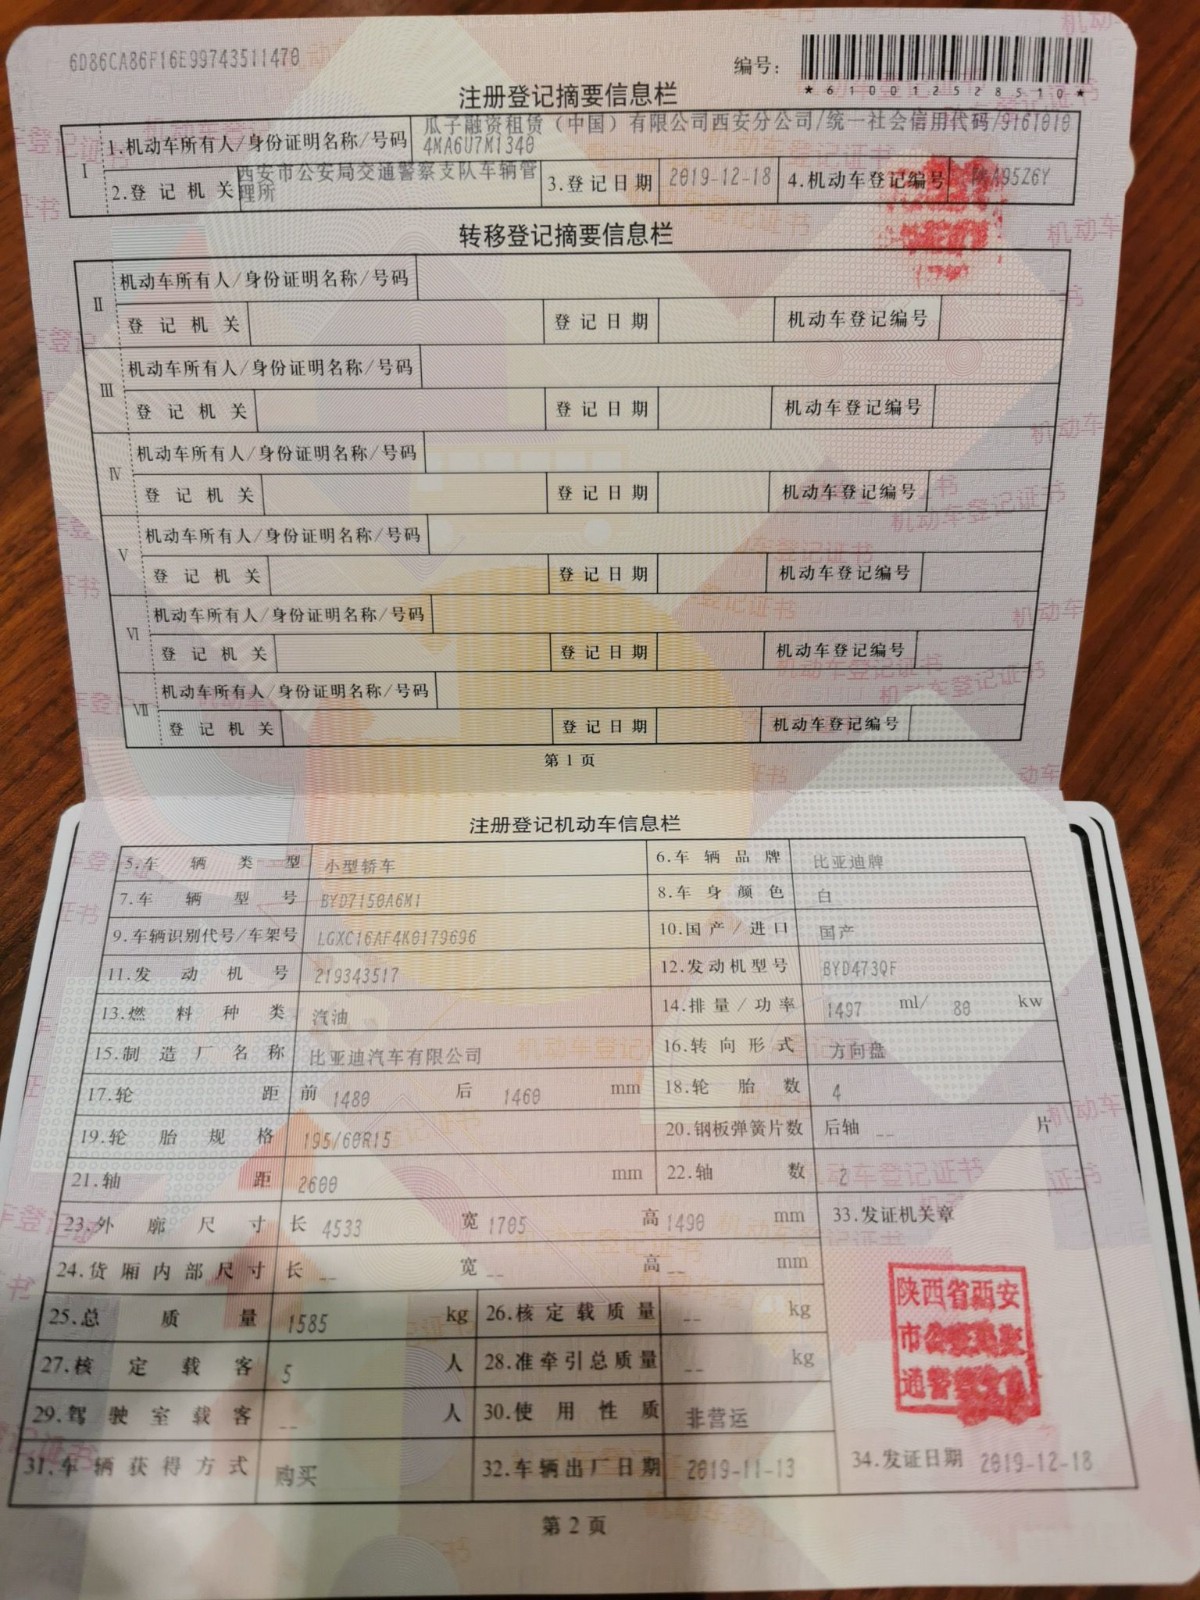 6D86CA86F16E99743511470
编号：
*610012528510*
注册登记摘要信息栏
I
1.机动车所有人/身份证明名称/号码 瓜子融资租赁（中国）有限公司西安分公司/统一社会信用代码/9161010
4MA6U7M1340
2.登记机关 西安市公安局交通警察支队车辆管
理所
3.登记日期 2019-12-18 4.机动车登记编号 A95Z6Y
转移登记摘要信息栏
II
机动车所有人/身份证明名称/号码
登记机关 登记日期 机动车登记编号
III
机动车所有人/身份证明名称/号码
登记机关 登记日期 机动车登记编号
IV
机动车所有人/身份证明名称/号码
登记机关 登记日期 机动车登记编号
V
机动车所有人/身份证明名称/号码
登记机关 登记日期 机动车登记编号
VI
机动车所有人/身份证明名称/号码
登记机关 登记日期 机动车登记编号
VII
机动车所有人/身份证明名称/号码
登记机关 登记日期 机动车登记编号
第1页
注册登记机动车信息栏
5.车辆类型 小型轿车 6.车辆品牌 比亚迪牌
7.车辆型号 BYD7150A6M1 8.车身颜色 白
9.车辆识别代号/车架号 LGXC16AF4K0179696 10.国产/进口 国产
11.发动机号 219343517 12.发动机型号 BYD473QF
13.燃料种类 汽油 14.排量/功率 1497 ml/ 80 kw
15.制造厂名称 比亚迪汽车有限公司 16.转向形式 方向盘
17.轮距 前 1480 后 1460 mm 18.轮胎数 4
19.轮胎规格 195/60R15 20.钢板弹簧片数 后轴 -- 片
21.轴距 2600 mm 22.轴数 2
23.外廓尺寸 长 4533 宽 1705 高 1490 mm 33.发证机关章
24.货厢内部尺寸 长 -- 宽 -- 高 -- mm
25.总质量 1585 kg 26.核定载质量 -- kg
27.核定载客 5 人 28.准牵引总质量 -- kg
29.驾驶室载客 -- 人 30.使用性质 非营运
31.车辆获得方式 购买 32.车辆出厂日期 2019-11-13 34.发证日期 2019-12-18
陕西省西安
市公安局交
通警察支队
第2页